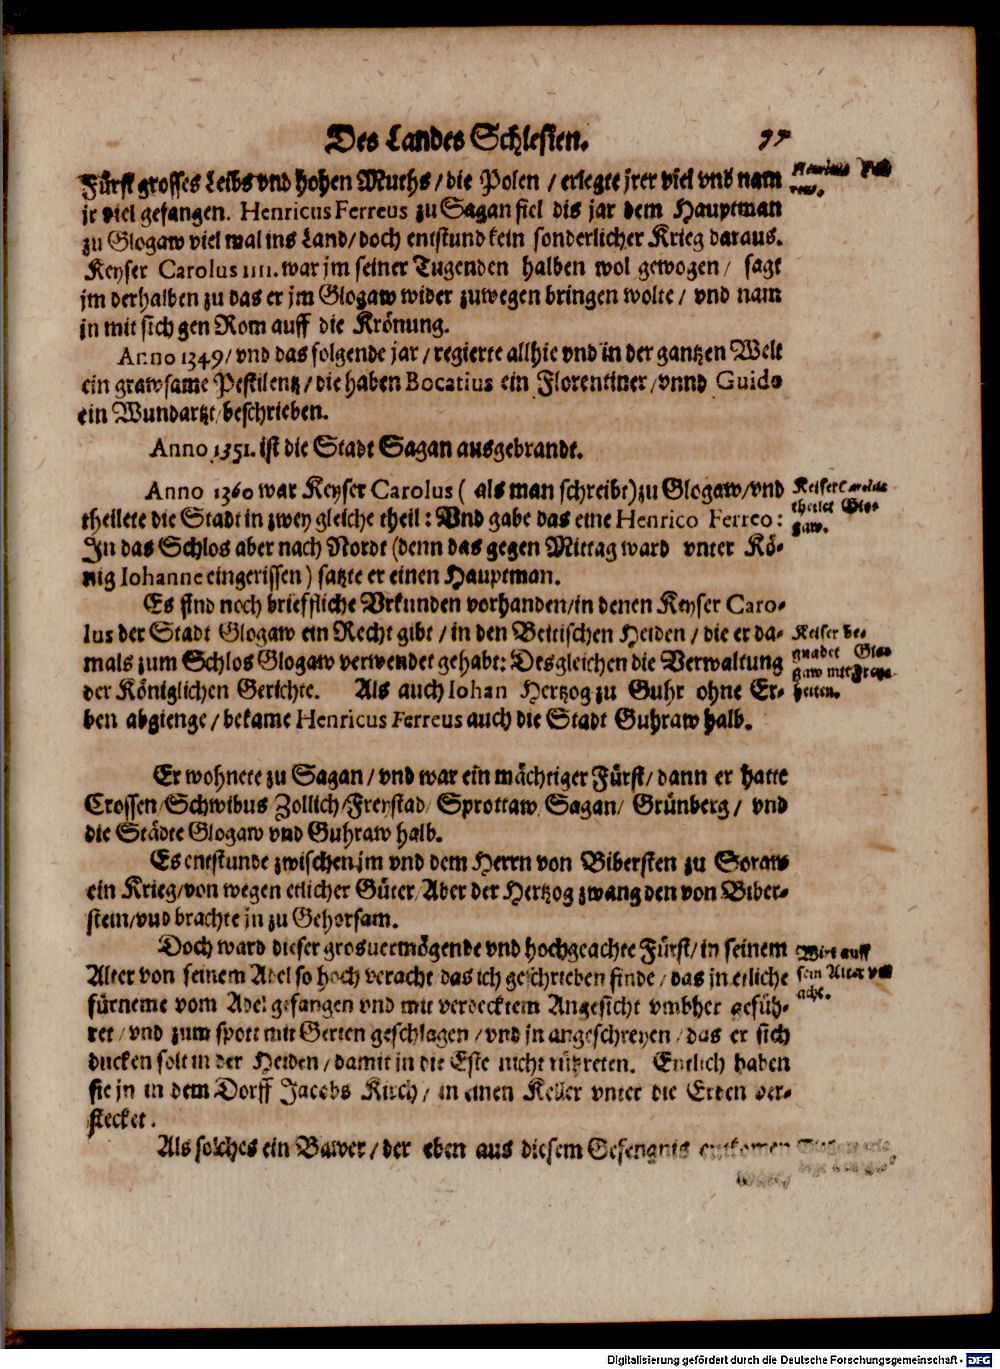 Des Landes Schlesien. 77
Fürst grosses Leibs vnd hohen Muths / die Polen / erlegte jrer viel vnd nam
jr viel gefangen. Henricus Ferreus zu Sagan fiel dis jar dem Hauptman
zu Glogaw viel mal ins Land / doch entstund kein sonderlicher Krieg daraus.
Keyser Carolus IIII. war jm seiner Tugenden halben wol gewogen / sagt
jm derhalben zu das er jm Glogaw wider zuwegen bringen wolte / vnd nam
jn mit sich gen Rom auff die Krönung.
Anno 1349 / vnd das folgende jar / regierte allhie vnd in der gantzen Welt
ein grawsame Pestilentz / die haben Bocatius ein Florentiner / vnnd Guido
ein Wundartzt / beschrieben.
Anno 1351. ist die Stadt Sagan ausgebrandt.
Anno 1360 war Keyser Carolus ( als man schreibt ) zu Glogaw / vnd
theilete die Stadt in zwey gleiche theil : Vnd gabe das eine Henrico Ferreo :
In das Schlos aber nach Nordt (denn das gegen Mittag ward vnter Kö-
nig Iohanne eingerissen ) satzte er einen Hauptman.
Keiser Carolus
theilet Glo-
gaw.
Es sind noch briefliche Vrkunden vorhanden / in denen Keyser Caro-
lus der Stadt Glogaw ein Recht gibt / in den Beitischen Heiden / die er da-
mals zum Schlos Glogaw verwendet gehabt : Desgleichen die Verwaltung
der Königlichen Gerichte. Als auch Iohan Hertzog zu Guhr ohne Er-
ben abgienge / bekame Henricus Ferreus auch die Stadt Guhraw halb.
Keiser be-
gnadet Glo-
gaw mit Freyheiten.
Er wohnete zu Sagan / vnd war ein mächtiger Fürst / dann er hatte
Crossen / Schwibus Zollich / Freystad / Sprottaw, Sagan / Grünberg / vnd
die Städte Glogaw vnd Guhraw halb.
Es entstunde zwischen jm vnd dem Herrn von Biberstein zu Soraw
ein Krieg / von wegen etlicher Güter / Aber der Hertzog zwang den von Biber-
stein / vnd brachte jn zu Gehorsam.
Doch ward dieser grosvermögende vnd hochgeachte Fürst / in seinem
Alter von seinem Adel so hoch veracht das ich geschrieben finde / das jn etliche
fürneme vom Adel gefangen vnd mit verdecktem Angesicht vmbher gefüh-
ret / vnd zum spott mit Gerten geschlagen / vnd jn angeschreyen / das er sich
ducken solt in der Heiden / damit jn die Este nicht rützreten. Endlich haben
sie jn in dem Dorff Jacobs Kirch / in einen Keller vnter die Erden ver-
stecket.
Wirt auff
sein Alter ver-
acht.
Als solches ein Bawer / der eben aus diesem Gefengnis entkomen